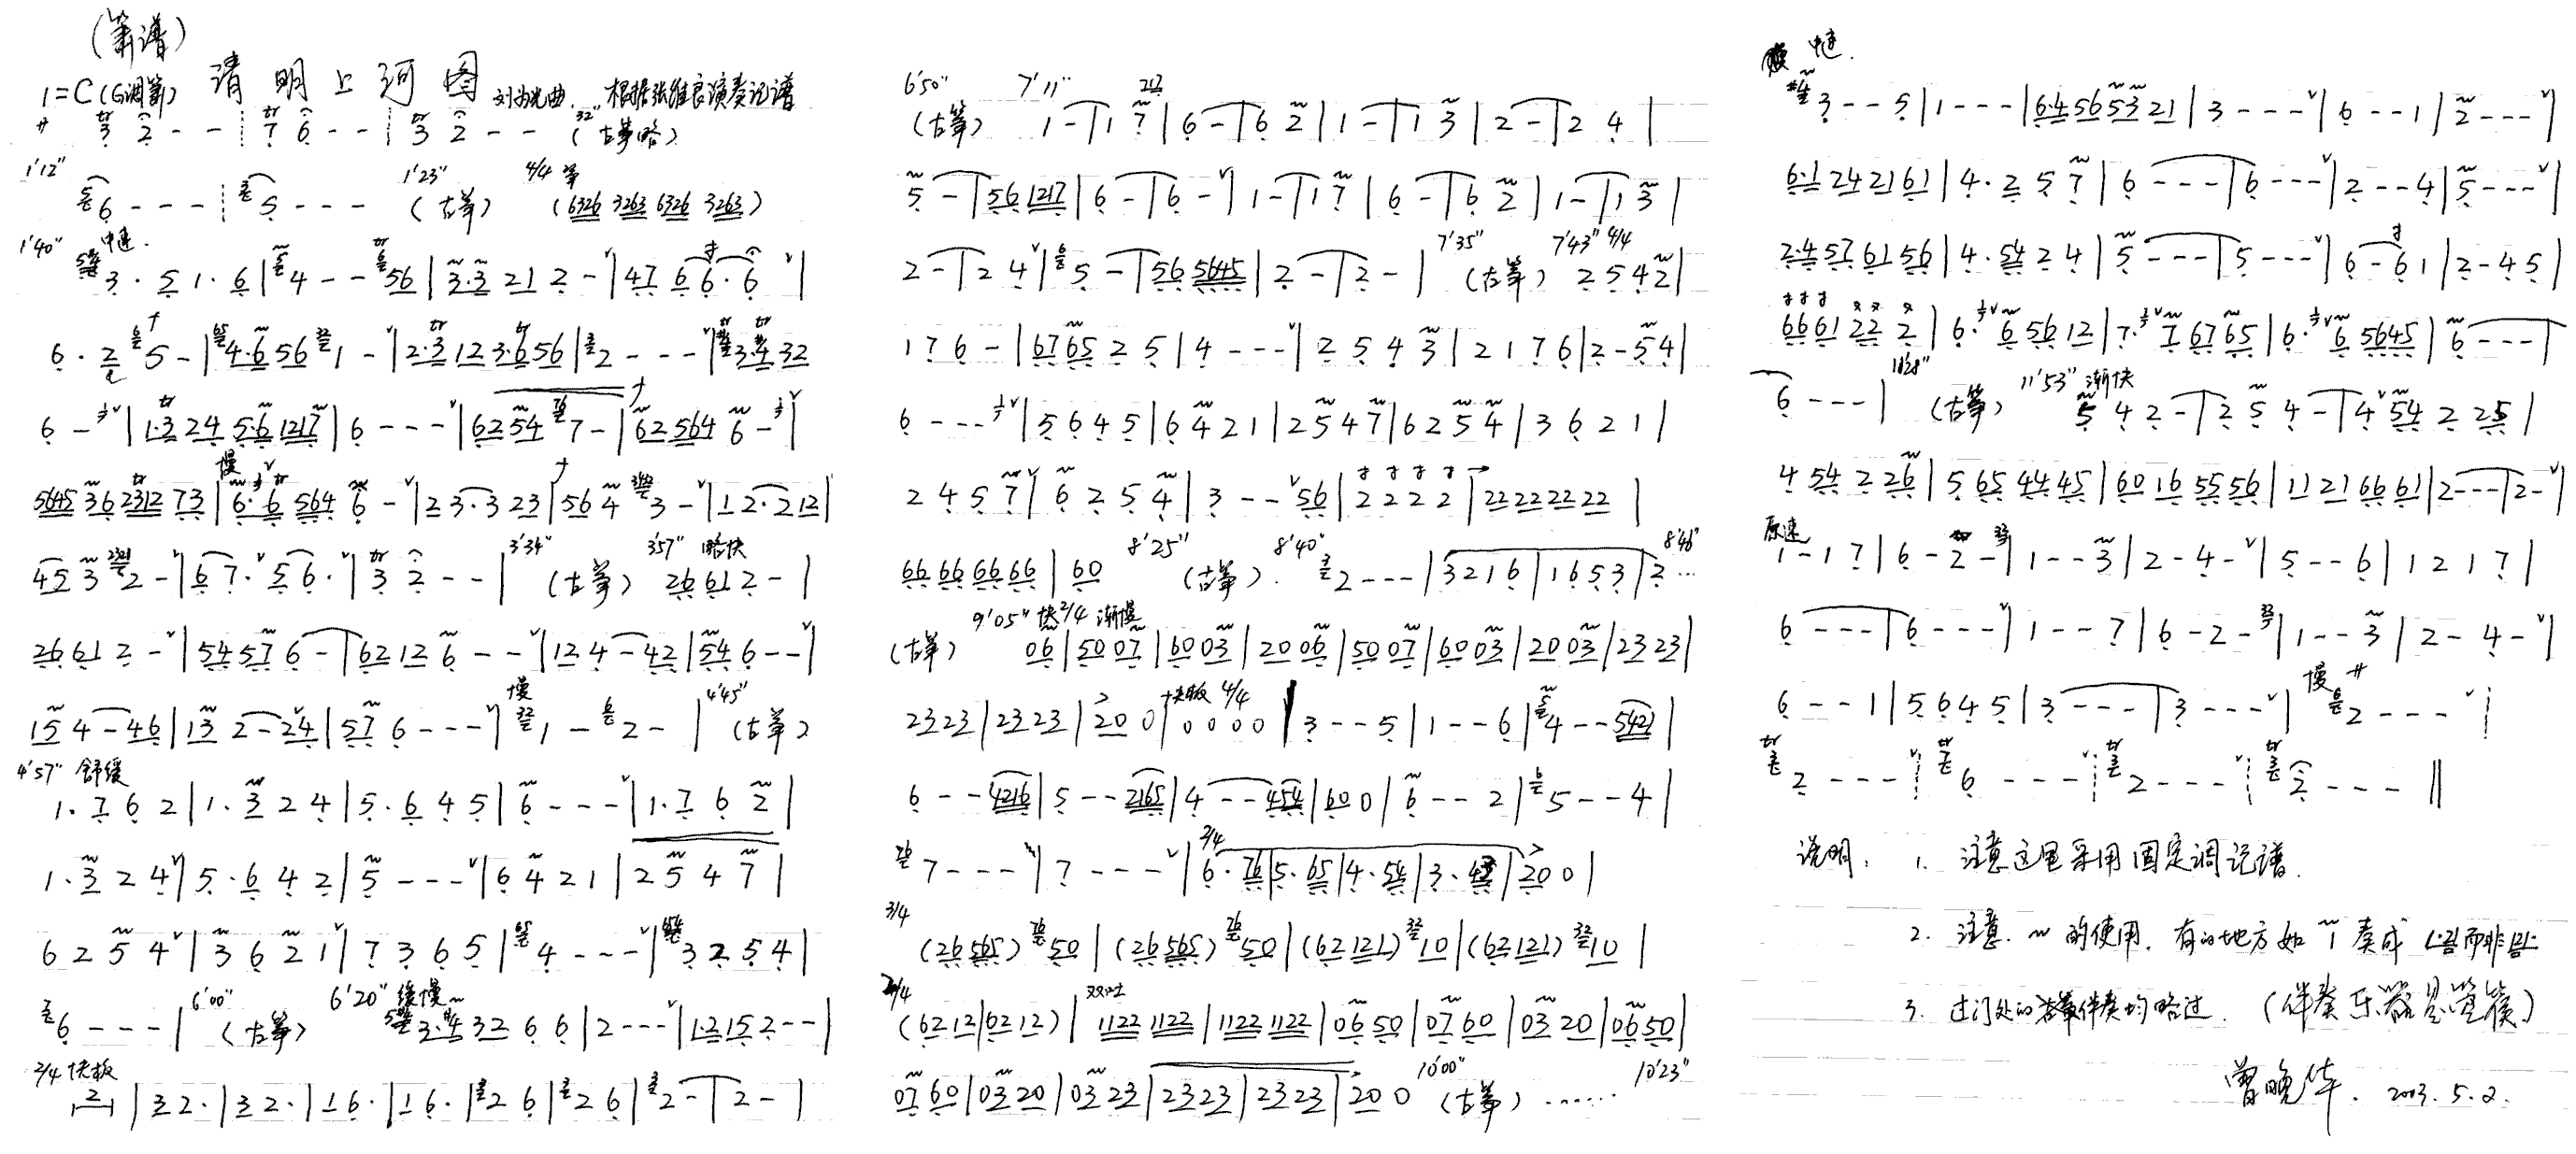 (箫谱)
1=C (G调箫) 请明上河图 刘为光曲. 根据张维良演奏记谱
3 2 - - ┊ 7 6 - - | 3 2 - - (古筝略)
1'12" 6 - - - ┊ 5 - - - 1'23" (古筝) 4/4 筝 (6326 3263 6326 3263)
1'40" 中速.
3 · 5 1 · 6 | 4 - - 56 | 3·3 21 2 - | 47 6 6 · 6 |
6 · 2 5 - | 4·6 56 1 - | 2·3 12 3·6 56 | 2 - - - | 3·4 32
6 - | 1·3 24 5·6 1217 | 6 - - - | 62 54 7 - | 62 564 6 - |
慢
5645 36 2312 73 | 6· 6 564 6 - | 23·3 23 | 56 4 3 - | 12·2 12 |
45 3 2 - | 67· 56· | 3 2 - - | 3'34" (古筝) 3'57" 略快 26 61 2 - |
26 61 2 - | 54 57 6 - | 62 12 6 - - | 12 4 - 42 | 54 6 - - |
15 4 - 46 | 13 2 - 24 | 57 6 - - - | 慢 1 - 2 - | 4'45" (古筝)
4'57" 舒缓
1. 7 6 2 | 1. 3 2 4 | 5. 6 4 5 | 6 - - - | 1. 7 6 2 |
1. 3 2 4 | 5. 6 4 2 | 5 - - - | 6 4 2 1 | 2 5 4 7 |
6 2 5 4 | 3 6 2 1 | 7 3 6 5 | 4 - - - | 3 2 5 4 |
6 - - - | 6'00" (古筝) 6'20" 缓慢 3·4 32 6 6 | 2 - - - | 1·2 15 2 - - |
2/4 快板
2 | 3 2. | 3 2. | 1 6. | 1 6. | 2 6 | 2 6 | 2 - | 2 - |
6'50" (古筝) 7'11" 1 - | 1 7 | 6 - | 6 2 | 1 - | 1 3 | 2 - | 2 4 |
5 - | 56 1217 | 6 - | 6 - | 1 - | 1 7 | 6 - | 6 2 | 1 - | 1 3 |
2 - | 2 4 | 5 - | 56 5645 | 2 - | 2 - | 7'35" (古筝) 7'43" 4/4 2 5 4 2 |
1 7 6 - | 67 65 2 5 | 4 - - - | 2 5 4 3 | 2 1 7 6 | 2 - 5 4 |
6 - - - | 5 6 4 5 | 6 4 2 1 | 2 5 4 7 | 6 2 5 4 | 3 6 2 1 |
2 4 5 7 | 6 2 5 4 | 3 - - 56 | 2 2 2 2 | 22 22 22 22 |
66 66 66 66 | 60 8'25" (古筝). 8'40" 2 - - - | 3 2 1 6 | 1 6 5 3 | 2 ... 8'46"
(古筝) 9'05" 快 2/4 渐慢 06 | 50 07 | 60 03 | 20 06 | 50 07 | 60 03 | 20 03 | 23 23 |
23 23 | 23 23 | 20 0 | 快板 4/4 0 0 0 0 | 3 - - 5 | 1 - - 6 | 4 - - 5421 |
6 - - 4216 | 5 - - 2165 | 4 - - 454 | 60 0 | 6 - - 2 | 5 - - 4 |
7 - - - | 7 - - - | 2/4 6 · 76 | 5 · 65 | 4 · 54 | 3 · 43 | 20 0 |
3/4 (26 565) 50 | (26 565) 50 | (62 121) 10 | (62 121) 10 |
2/4 (62 12 | 62 12) | 双吐 1122 1122 | 1122 1122 | 06 50 | 07 60 | 03 20 | 06 50 |
07 60 | 03 20 | 03 23 | 23 23 | 23 23 | 20 0 10'00" (古筝) ...... 10'23"
中速.
3 - - 5 | 1 - - - | 6·4 56 53 21 | 3 - - - | 6 - - 1 | 2 - - - |
6·1 24 21 61 | 4 · 2 5 7 | 6 - - - | 6 - - - | 2 - - 4 | 5 - - - |
2·4 57 61 56 | 4 · 54 2 4 | 5 - - - | 5 - - - | 6 - 6 1 | 2 - 4 5 |
66 61 22 2 | 6 · 6 56 12 | 7 · 7 67 65 | 6 · 6 5645 | 6 - - - |
6 - - - | (古筝) 11'53" 渐快 5 4 2 - | 2 5 4 - | 4 54 2 25 |
4 54 2 26 | 5 65 44 45 | 60 16 55 56 | 11 21 66 61 | 2 - - - | 2 - |
原速
1 - 1 7 | 6 - 2 - | 1 - - 3 | 2 - 4 - | 5 - - 6 | 1 2 1 7 |
6 - - - | 6 - - - | 1 - - 7 | 6 - 2 - | 1 - - 3 | 2 - 4 - |
6 - - 1 | 5 6 4 5 | 3 - - - | 3 - - - | 慢 2 - - - ┊
2 - - - ┊ 6 - - - ┊ 2 - - - ┊ 2 - - - ‖
说明: 1. 注意这里采用固定调记谱.
2. 注意. ~ 的使用. 有的地方如 1 奏成 而非
3. 过门处的古筝伴奏均略过. (伴奏乐器是箜篌)
曾晚华. 2003. 5. 2.